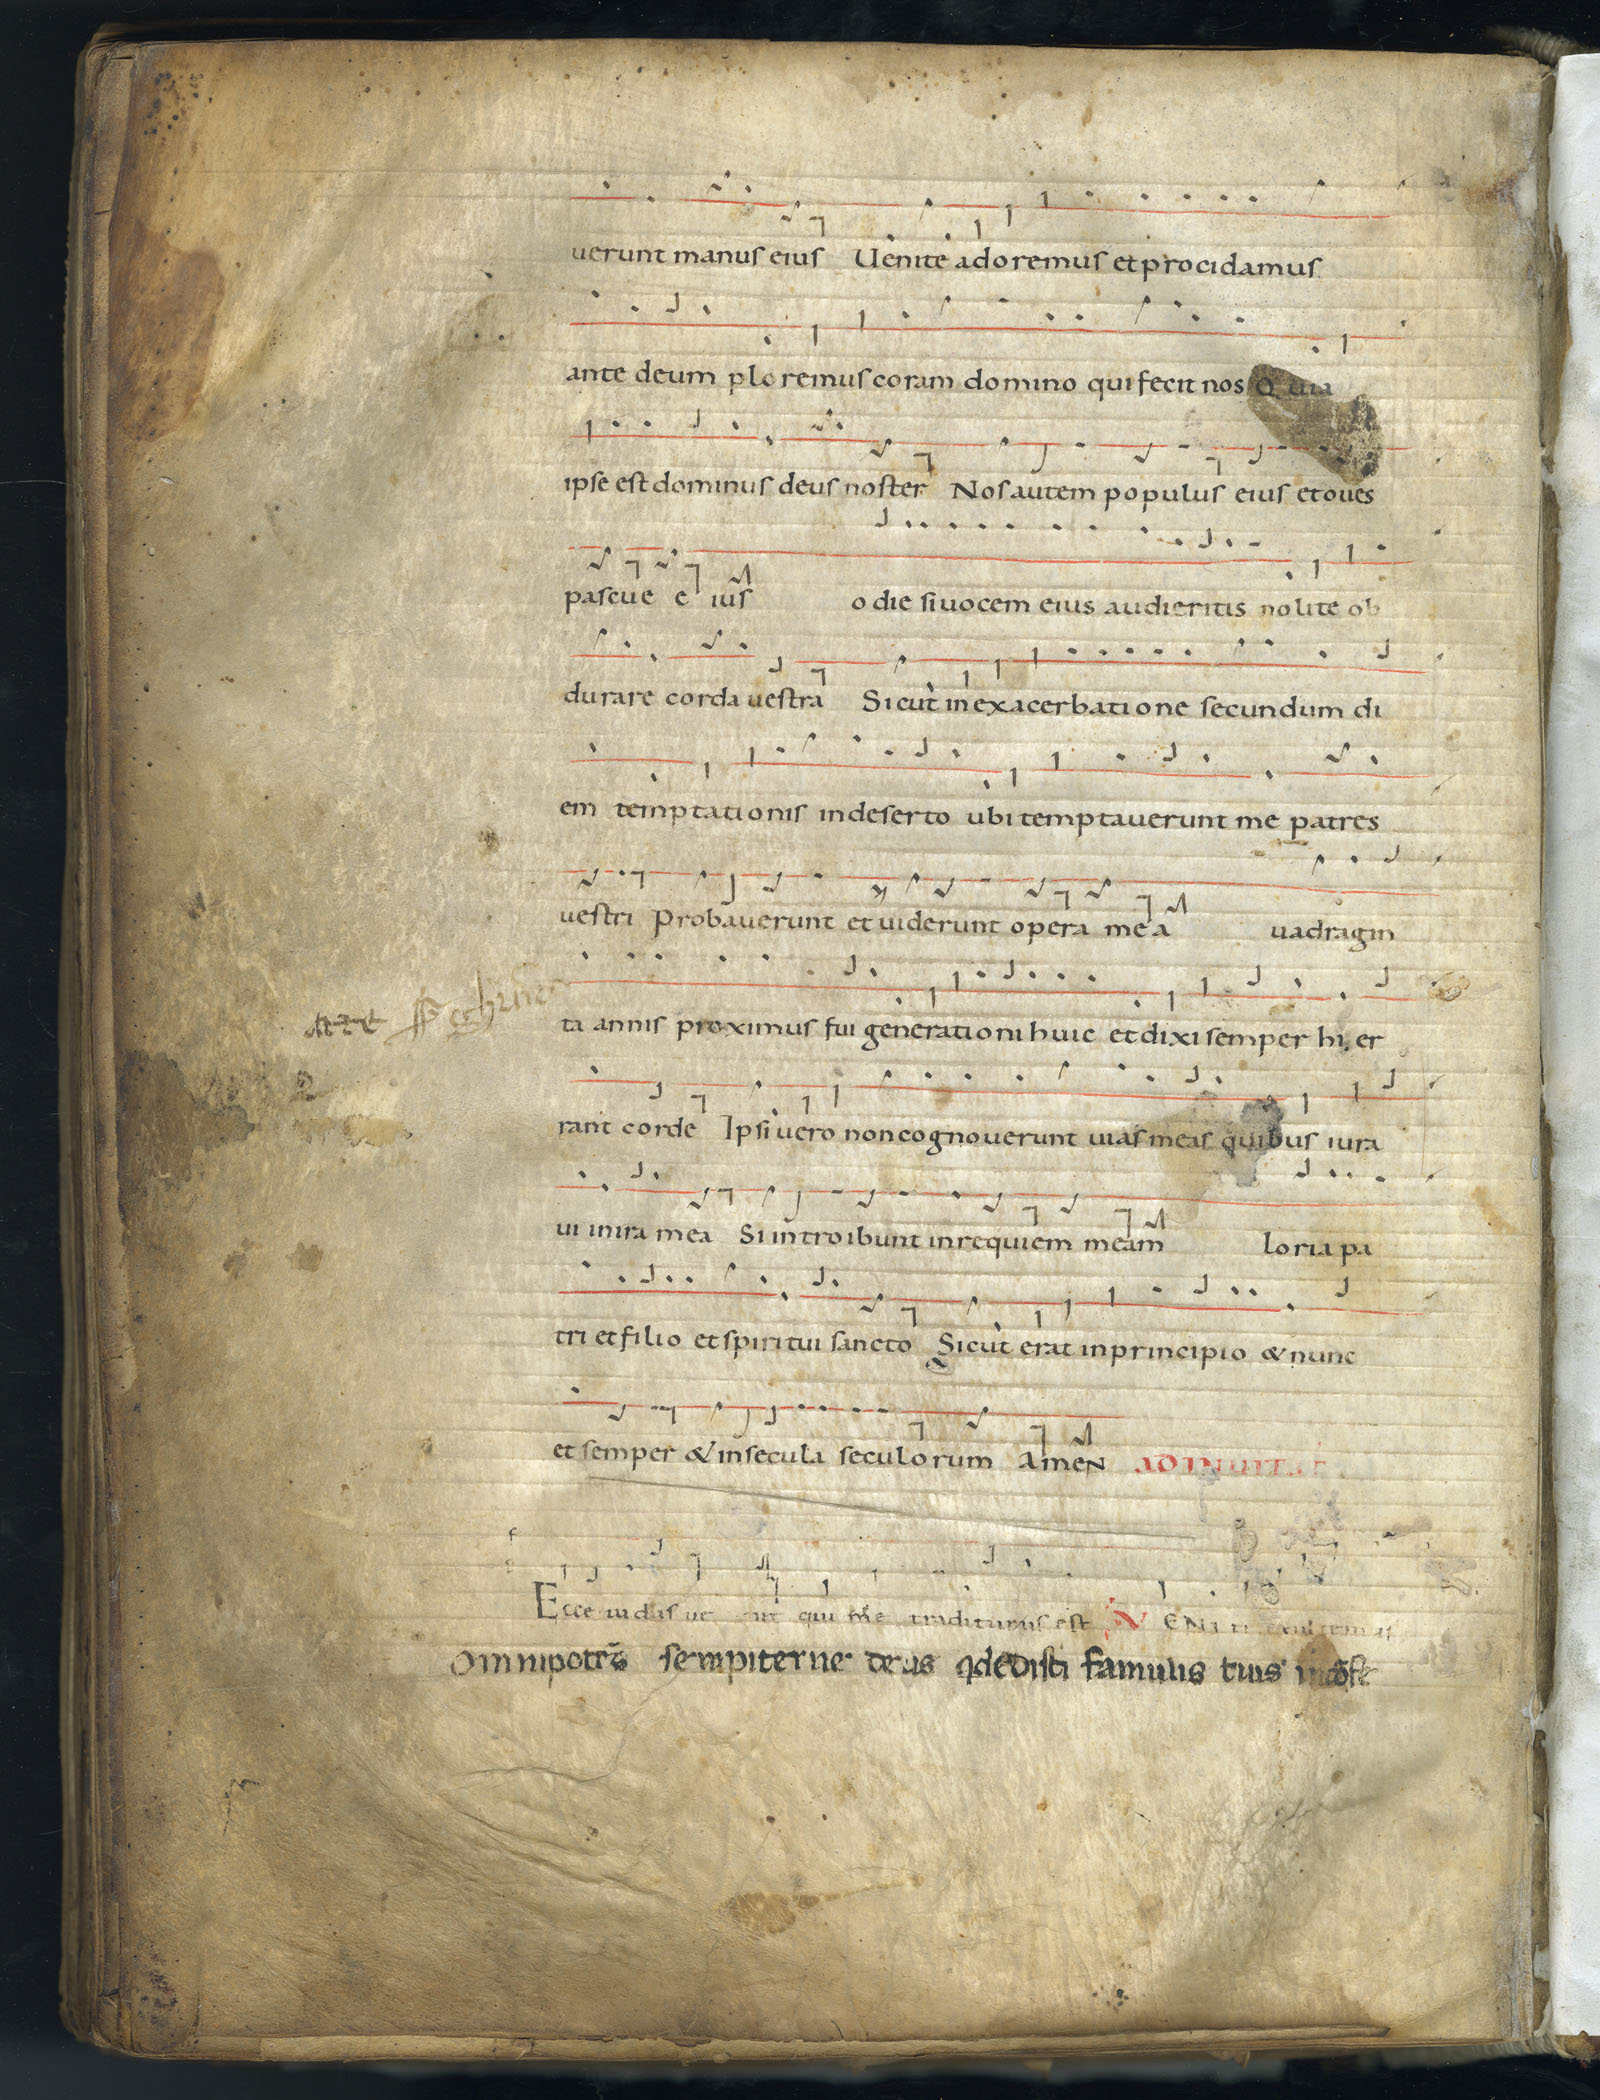 uerunt manus eius Uenite adoremus et procidamus
ante deum ploremus coram domino qui fecit nos Quia
ipse est dominus deus noster Nos autem populus eius et oues
pascue eius odie si uocem eius audieritis nolite ob
durare corda uestra Sicut in exacerbatione secundum di
em temptationis in deserto ubi temptauerunt me patres
uestri Probauerunt et uiderunt opera mea uadragin
ta annis proximus fui generationi huic et dixi semper hi er
rant corde Ipsi uero non cognouerunt uias meas quibus iura
ui in ira mea Si introibunt in requiem meam loria pa
tri et filio et spiritui sancto Sicut erat in principio & nunc
et semper & in secula seculorum Amen
Ecce iudas qui me traditurus est VENI
Omnipotēs sempiterne deus qdedisti famulis tuis